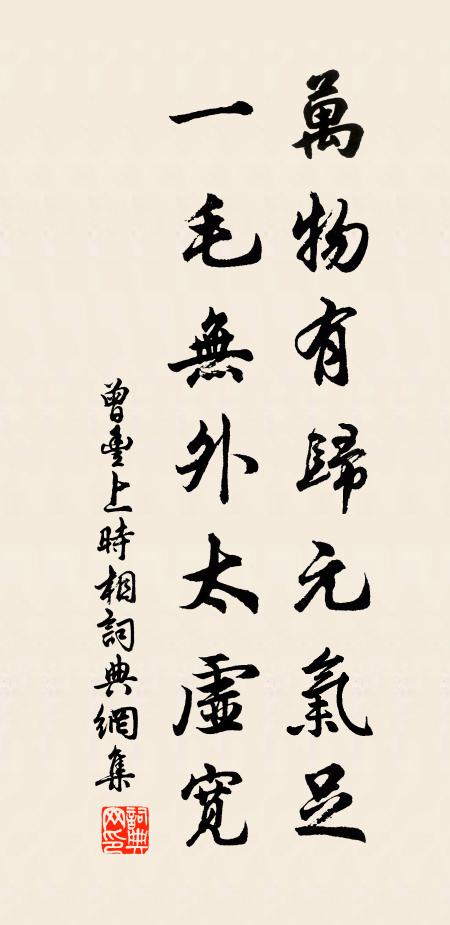 萬物有歸元氣足
一毛無外太虛寬
曾豐上時相詞典網集
詞典網印